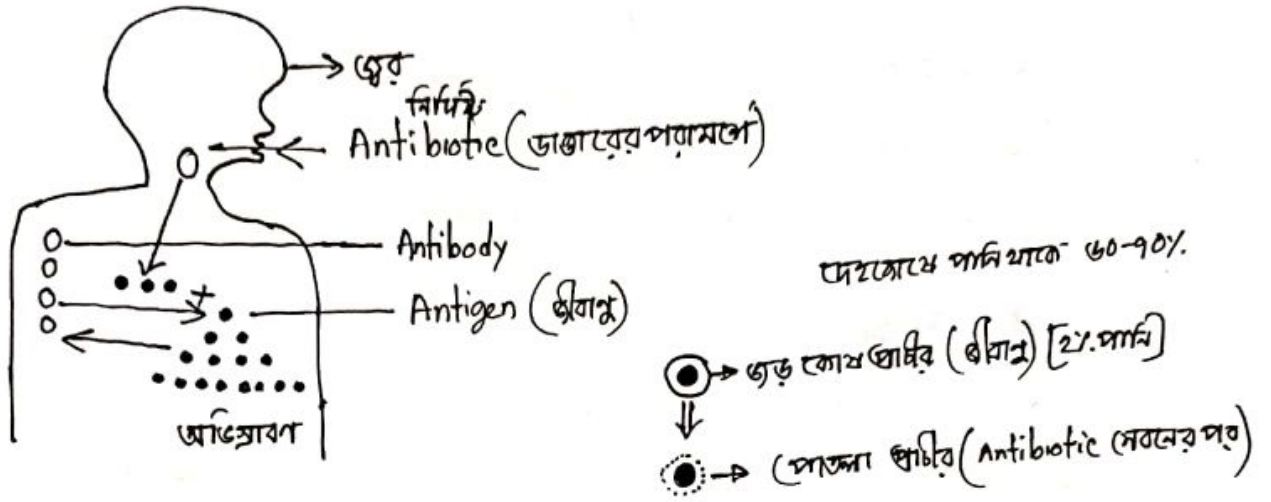 জ্বর
নির্দিষ্ট
Antibiotic (ডাক্তারের পরামর্শে)
Antibody
Antigen (জীবানু)
অভিস্রাবণ
দেহকোষে পানি থাকে ৬০-৭০%.
জড় কোষ প্রাচীর (জীবানু) [২%. পানি]
পাতলা প্রাচীর (Antibiotic সেবনের পর)